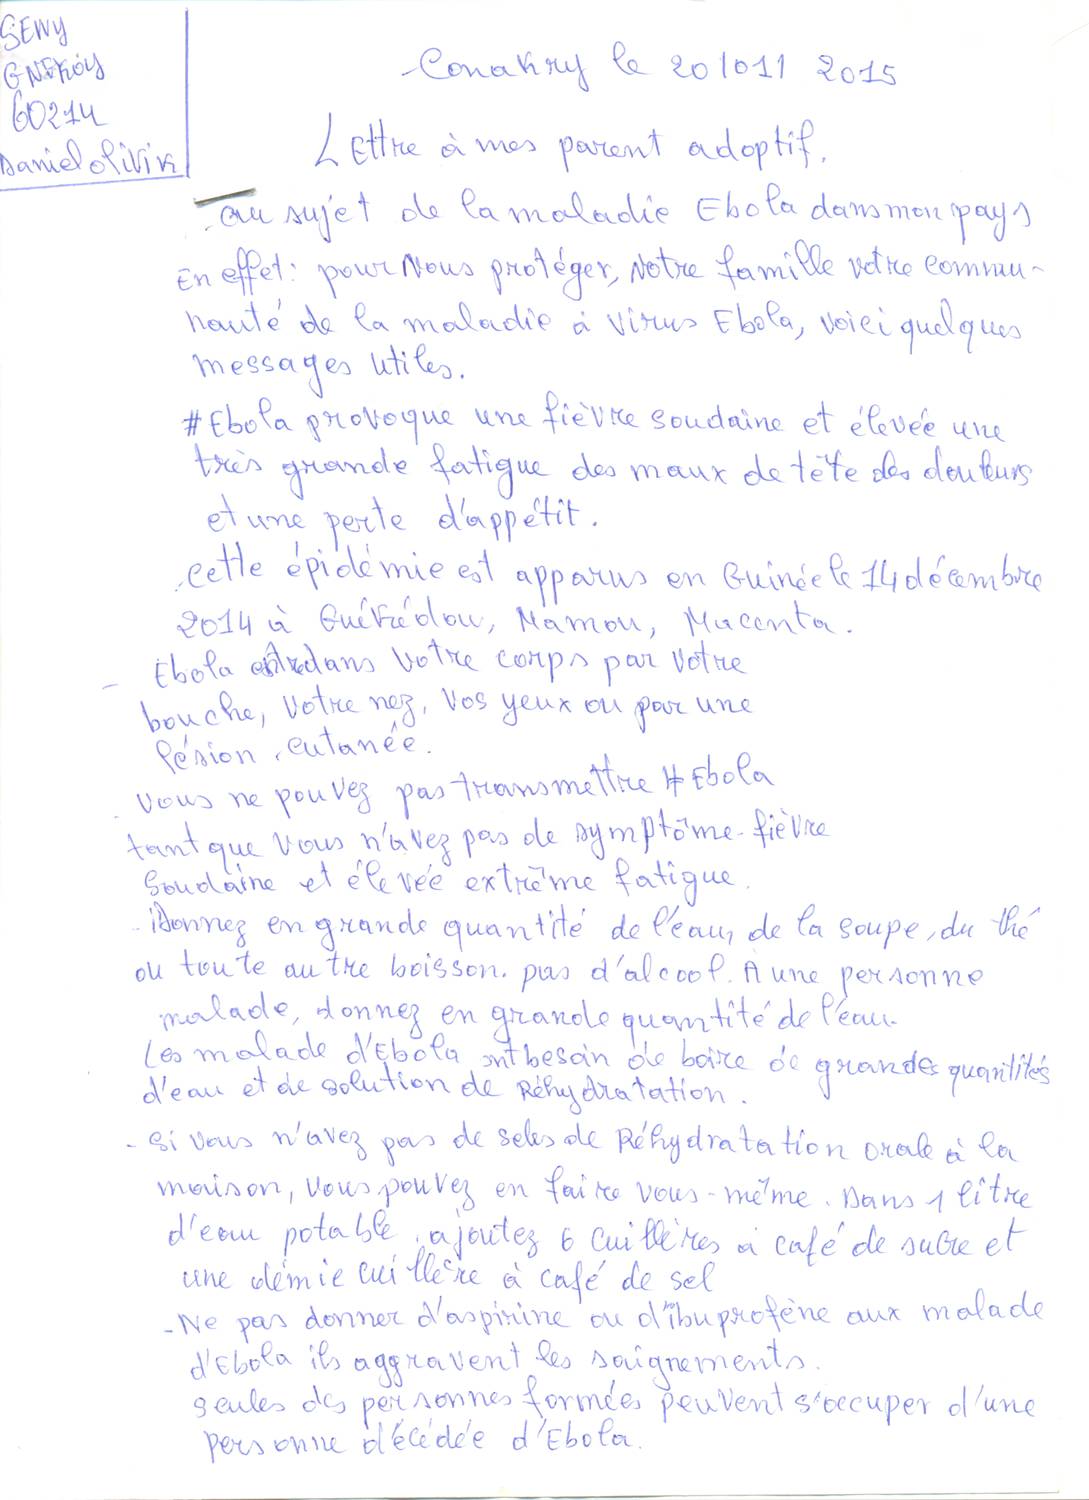 SENY
GNEKOY
60214
Daniel olivix
Conakry le 20/011 2015
Lettre à mes parent adoptif.
au sujet de la maladie Ebola dans mon pays
En effet: pour Nous protéger, Notre famille votre commu-
nauté de la maladie à virus Ebola, voici quelques
messages utiles.
#Ebola provoque une fièvre soudaine et élevée une
très grande fatigue des maux de tête des douleurs
et une perte d'appétit.
.cette épidémie est apparus en Guinée le 14 décembre
2014 à Guékédou, Mamou, Macenta.
- Ebola entre dans votre corps par votre
bouche, votre nez, vos yeux ou par une
lésion cutanée.
. vous ne pouvez pas transmettre # Ebola
tant que vous n'avez pas de symptôme - fièvre
soudaine et élevée extrême fatigue.
- Donnez en grande quantité de l'eau, de la soupe, du thé
ou toute autre boisson. pas d'alcool. À une personne
malade, donnez en grande quantité de l'eau.
Les malade d'Ebola ont besoin de boire de grandes quantités
d'eau et de solution de Réhydratation.
- Si vous n'avez pas de seles de Réhydratation orale à la
maison, vous pouvez en faire vous-même. Dans 1 litre
d'eau potable, ajoutez 6 cuillères à café de sucre et
une démie cuillère à café de sel
- Ne pas donner d'aspirine ou d'ibuprofène aux malade
d'Ebola ils aggravent les saignements.
seules des personnes formées peuvent s'occuper d'une
personne décédée d'Ebola.